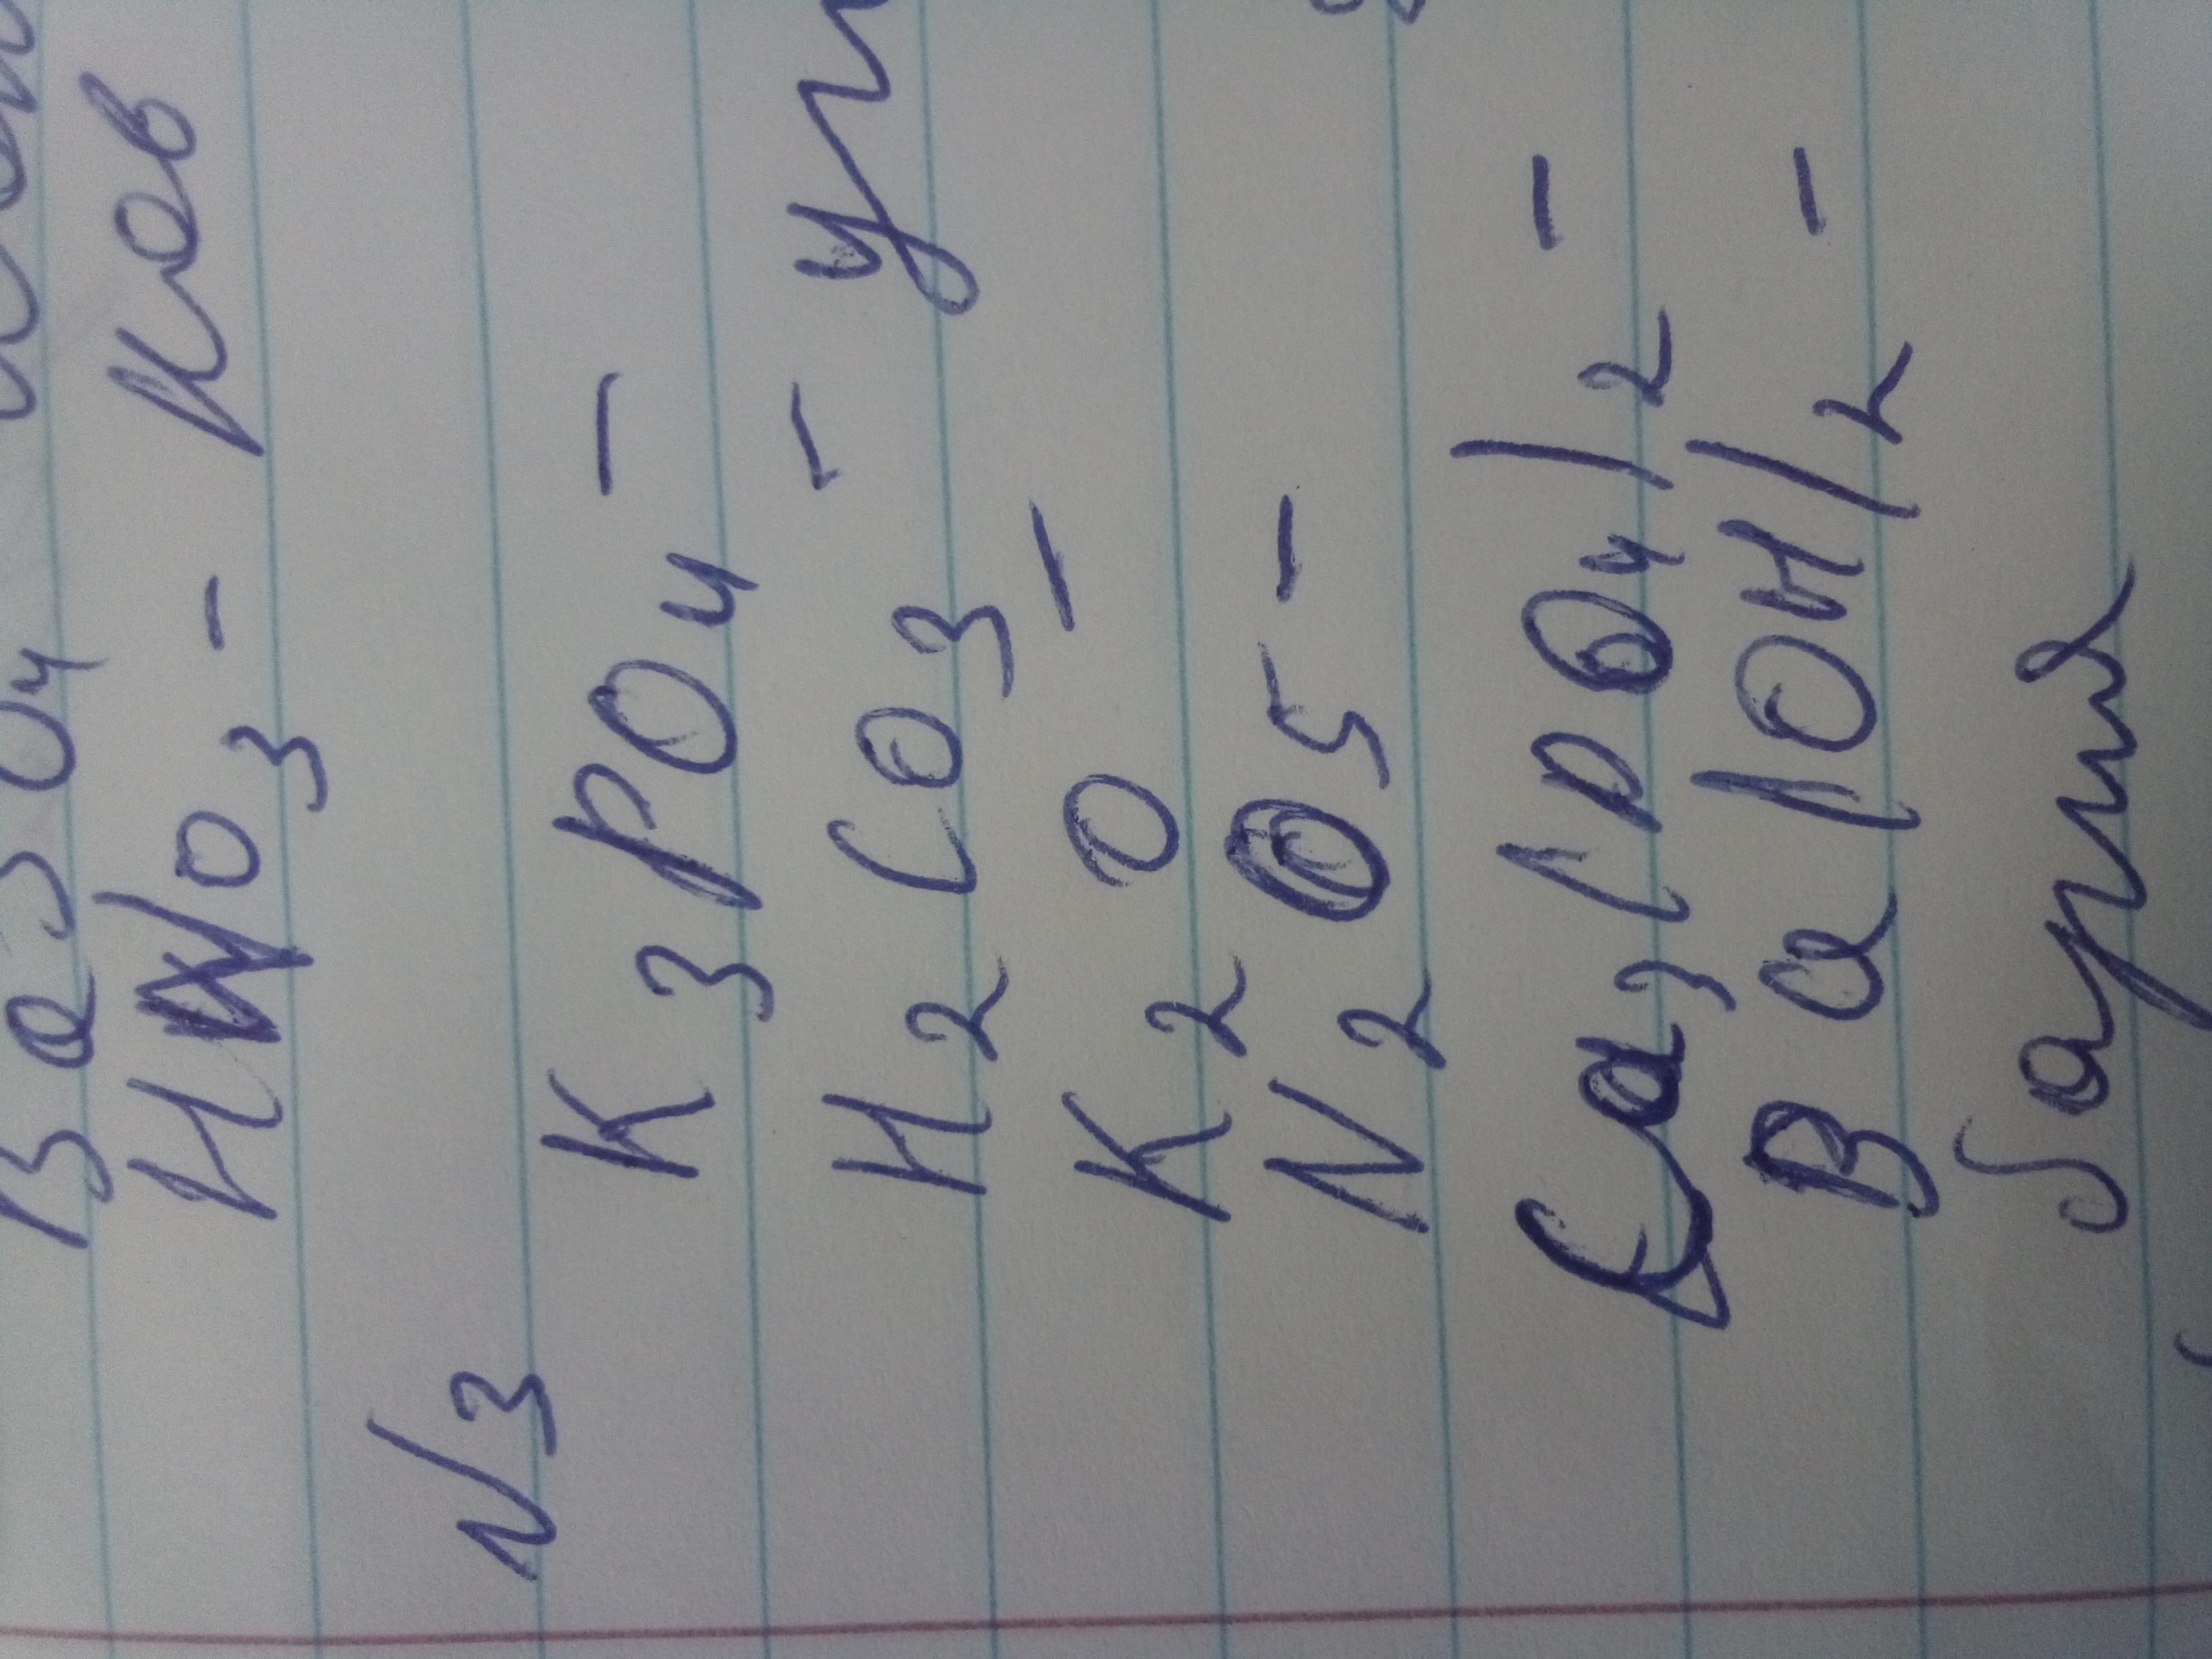 BaSO4
HNO3 - ков
N3
K3PO4 -
H2CO3 - уг
K2O -
N2O5 -
Ca3(PO4)2 -
Ba(OH)2 -